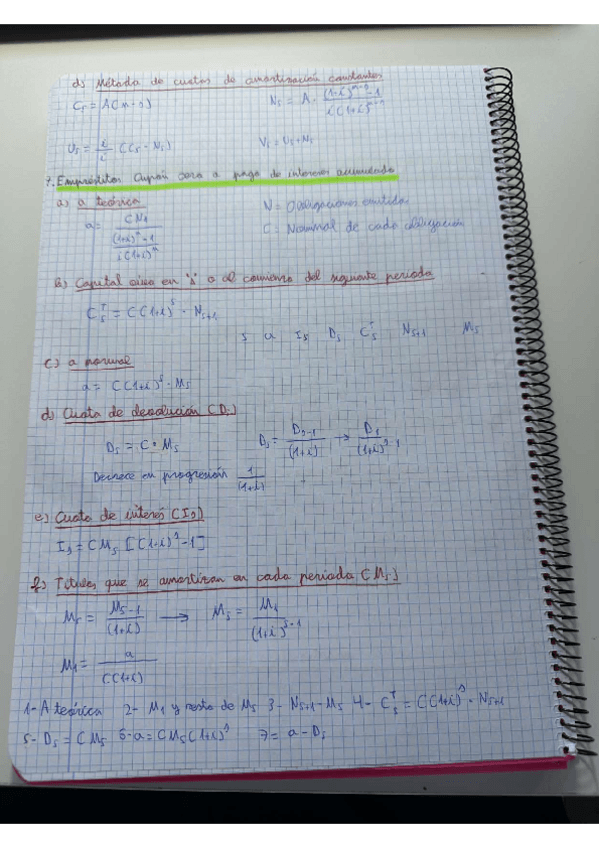 d) Método de cuotas de amortización constantes
C_s = A(n-s) N_s = A · \frac{(1+i)^{n-s}-1}{i(1+i)^{n-s}}
U_s = \frac{i}{i'} (C_s - N_s) V_s = U_s + N_s
7. Empréstitos Cupón cero o pago de intereses acumulado
a) a teórica N = Obligaciones emitidas
a = \frac{C N_1}{\frac{(1+i)^n - 1}{i(1+i)^n}} C = Nominal de cada obligación
b) Capital vivo en "s" o al comienzo del siguiente periodo
C_s^T = C(1+i)^s · N_{s+1}
s a I_s D_s C_s^T N_{s+1} M_s
c) a normal
a = C(1+i)^s · M_s
d) Cuota de devolución (D_s)
D_s = C · M_s D_s = \frac{D_{s-1}}{(1+i)} → \frac{D_1}{(1+i)^{s-1}}
Decrece en progresión \frac{1}{(1+i)}
e) Cuota de interés (I_s)
I_s = C M_s [(1+i)^s - 1]
f) Títulos que se amortizan en cada periodo (M_s)
M_s = \frac{M_{s-1}}{(1+i)} → M_s = \frac{M_1}{(1+i)^{s-1}}
M_1 = \frac{a}{C(1+i)}
1- A teórica 2- M_1 y resto de M_s 3- N_{s+1} - M_s 4- C_s^T = C(1+i)^s · N_{s+1}
5- D_s = C M_s 6- a = C M_s (1+i)^s 7= a - D_s